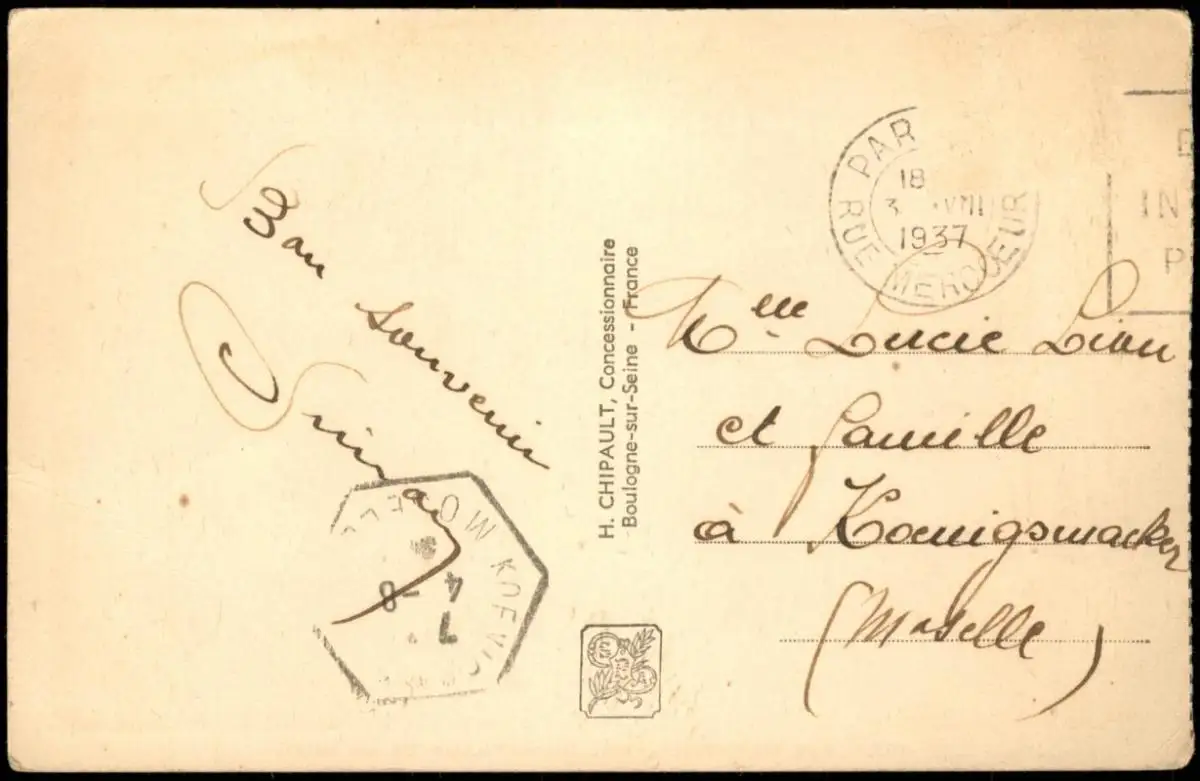 Bon
souvenir
H. CHIPAULT, Concessionnaire
Boulogne-sur-Seine - France
PAR
18
3 VIII
1937
RUE MERCOEUR
IN
P
Melle Lucie Lion
et famille
à Koenigsmacker
(Moselle)
MOSELLE
4 -8